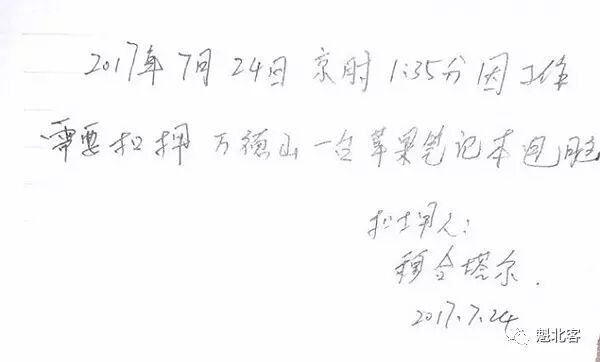 2017年7月24日京时1:35分因工作
需要扣押万德山一台苹果笔记本电脑
扣押人:
穆合塔尔.
2017.7.24
魁北客